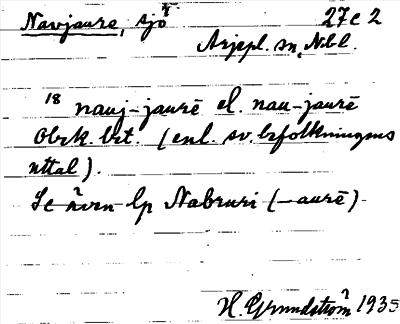 Navjaure, sjö 27c2
Arjepl. sn, Nbl.
18 nauj-jaurē el. nau-jaurē
Obek. bet. (enl. sv. befolkningens
uttal).
Se även lp Nabruri (-aurē)
H. Grundström 1935